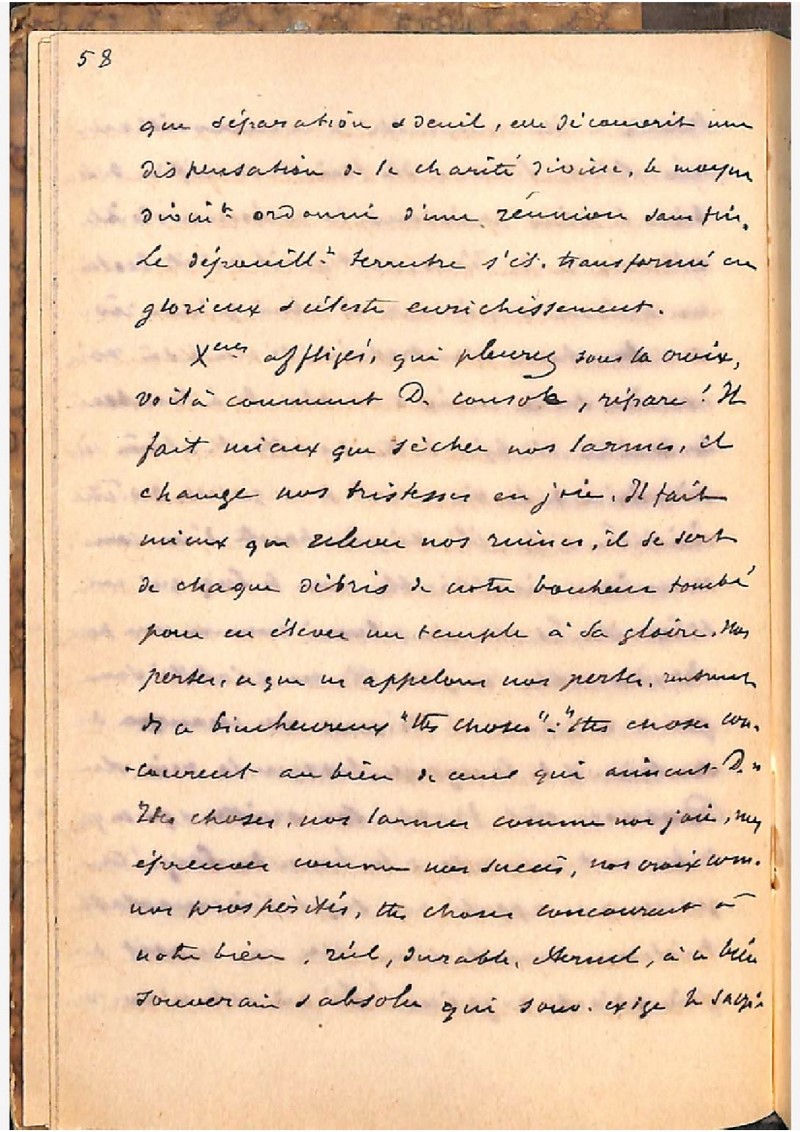 58
que séparation & deuil, elle découvrit une
dispensation de la charité divine, le moyen
divint ordonné d'une réunion sans fin.
Le dépouillt terrestre s'est transformé en
glorieux & céleste enrichissement.
Xens affligés, qui pleurez sous la croix,
voilà comment D. console, répare ! Il
fait mieux que sécher nos larmes, il
change nos tristesses en joie. Il fait
mieux que relever nos ruines, il se sert
de chaque débris de notre bonheur tombé
pour en élever un temple à sa gloire. Nos
pertes, ce que ns appelons nos pertes, rentrent
ds ce bienheureux "ttes choses" : "ttes choses con-
-courent au bien de ceux qui aiment D."
Ttes choses, nos larmes comme nos joies, nos
épreuves comme nos succès, nos croix com.
nos prospérités, ttes choses concourent à
notre bien, réel, durable, éternel, à ce bien
souverain & absolu qui souv. exige le sacri-